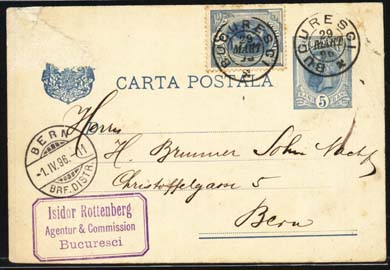 BUCURESCI
29
MART
96
BUCURESCI
29
MART
96
CARTA POSTALA
5
BERN
-1.IV.96.-11
BRF.DISTR.
Herrn
H. Brunner Sohn Nachf.
Christoffelgasse 5
Bern
Isidor Rottenberg
Agentur & Commission
Bucuresci